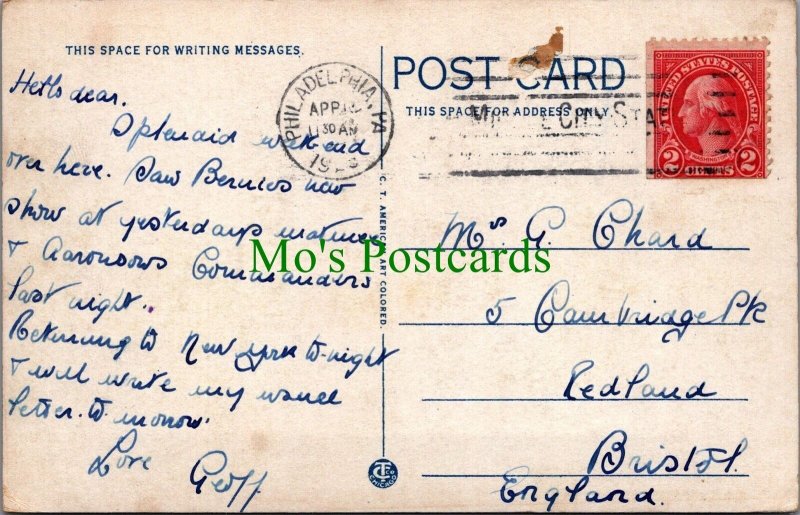 THIS SPACE FOR WRITING MESSAGES.
Hello dear.
Splendid weekend
over here. Saw Bernies new
show at yesterdays matinee
& Aaronsons Commanders
last night.
Returning to New York to-night
& will write my usual
letter to-morrow.
Love
Geoff
PHILADELPHIA, PA
APR
11 30 AM
C. T. AMERICAN ART COLORED.
CHICAGO
POST CARD
THIS SPACE FOR ADDRESS ONLY.
UNITED STATES POSTAGE
2 2
Mrs G. Chard
5 Cambridge Pk
Redland
Bristol.
England.
Mo's Postcards